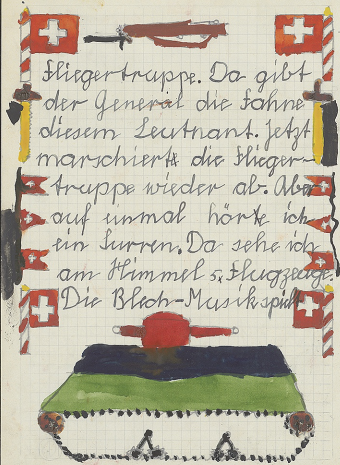 Fliegertruppe. Da gibt
der General die Fahne
diesem Leutnant. Jetzt
marschiert die Flieger-
truppe wieder ab. Aber
auf unmal hörte ich
ein Surren. Da sehe ich
am Himmel 5 Flugzeuge.
Die Blech-Musik spielt